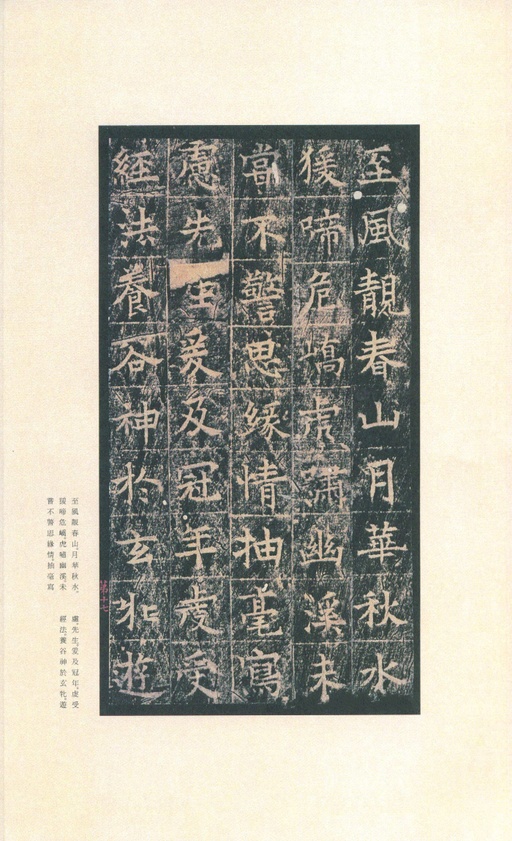 至風靚春山月華秋水
猨啼危嶠虎嘯幽溪未
嘗不警思緣情抽毫寫
慮先生爰及冠年虔受
經法養谷神於玄牝遊
第十七
至風靚春山，月華秋水，
猨啼危嶠，虎嘯幽溪，未
嘗不警思緣情，抽毫寫
慮。先生爰及冠年，虔受
經法，養谷神於玄牝，遊